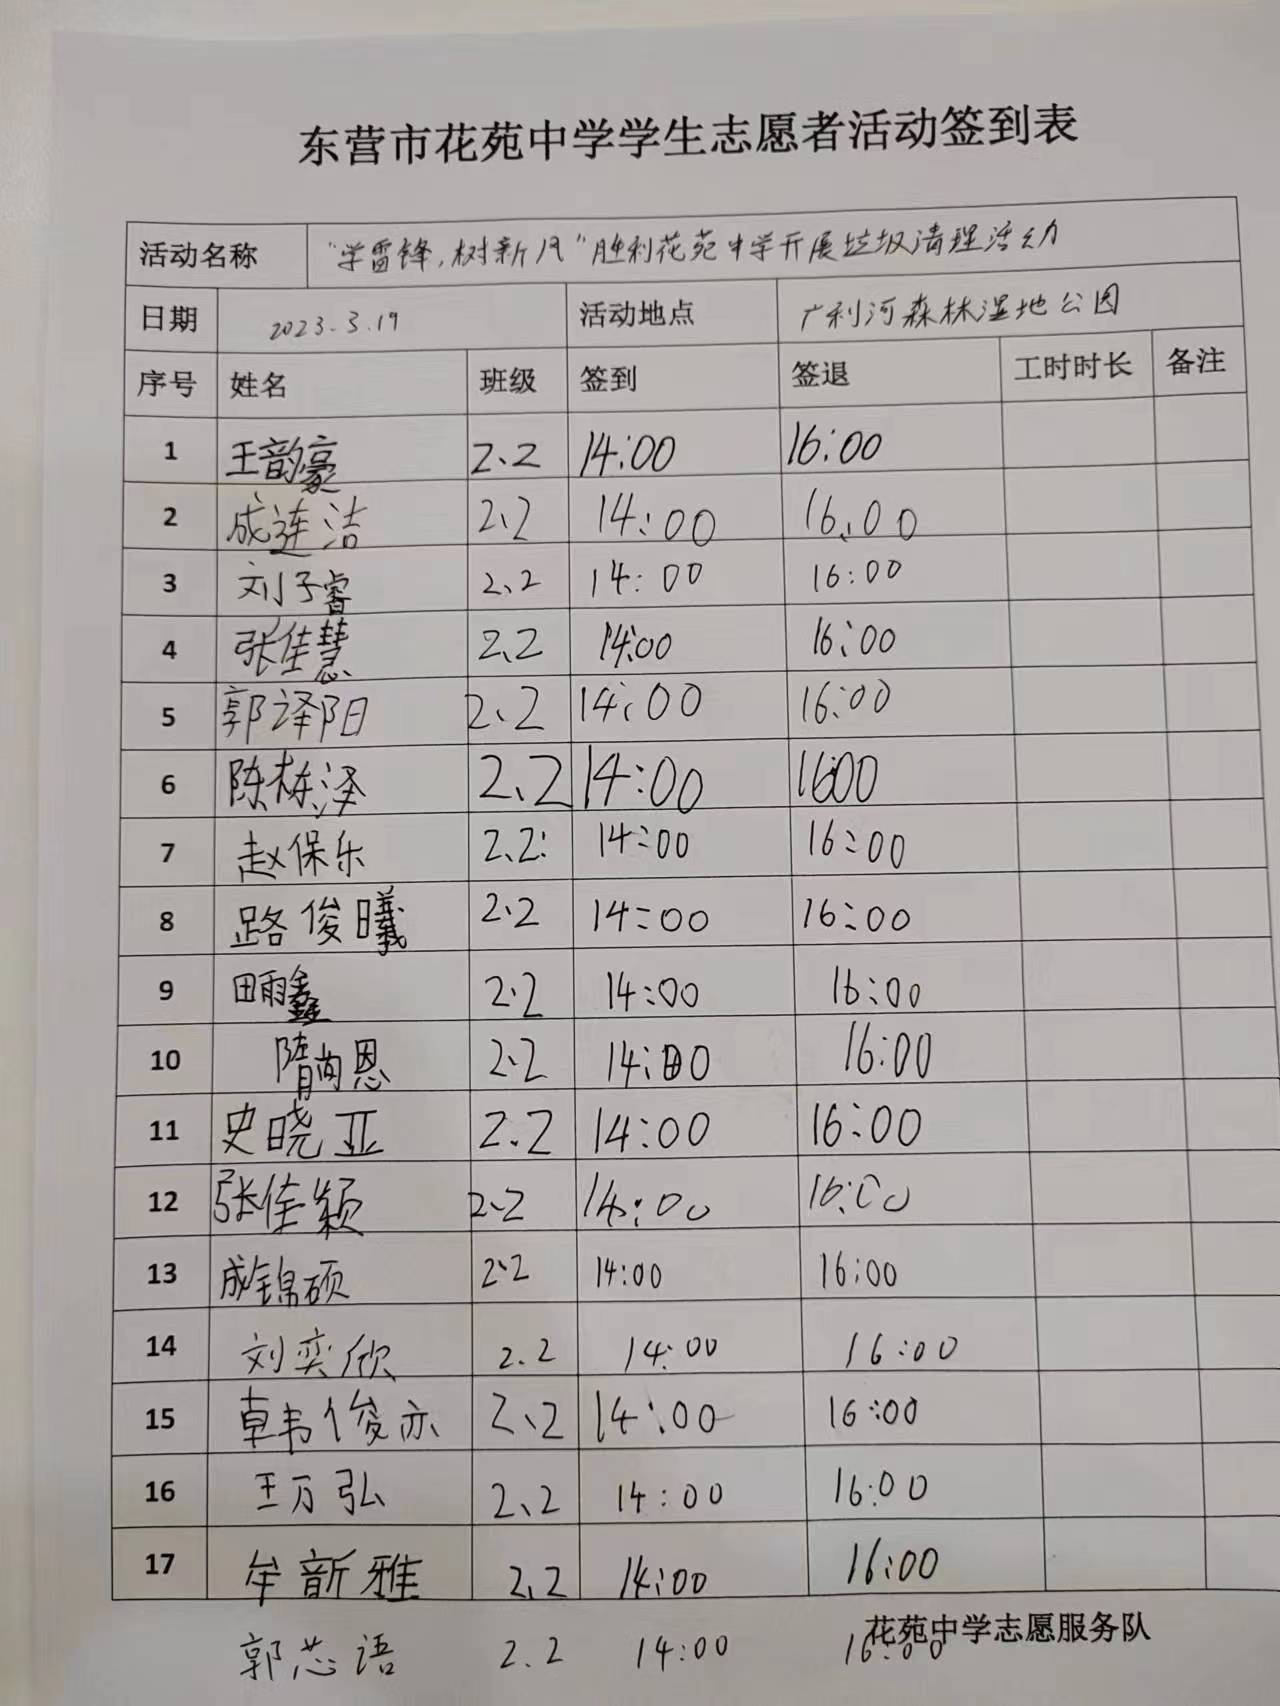 东营市花苑中学学生志愿者活动签到表
活动名称 “学雷锋,树新风”胜利花苑中学开展垃圾清理活动
日期 2023.3.19 活动地点 广利河森林湿地公园
序号 姓名 班级 签到 签退 工时时长 备注
1 王韵豪 2、2 14:00 16:00
2 成连洁 2,2 14:00 16:00
3 刘子睿 2、2 14:00 16:00
4 张佳慧 2、2 14:00 16:00
5 郭译阳 2、2 14:00 16:00
6 陈栋泽 2、2 14:00 1600
7 赵保乐 2、2: 14:00 16:00
8 路俊曦 2、2 14:00 16:00
9 田雨鑫 2.2 14:00 16:00
10 隋尚恩 2、2 14:00 16:00
11 史晓亚 2、2 14:00 16:00
12 张佳颖 2.2 14:00 16:00
13 成锦硕 2.2 14:00 16:00
14 刘奕欣 2.2 14:00 16:00
15 卓韦俊亦 2、2 14:00 16:00
16 王万弘 2、2 14:00 16:00
17 牟新雅 2、2 14:00 16:00
花苑中学志愿服务队
郭芯语 2.2 14:00 16:00